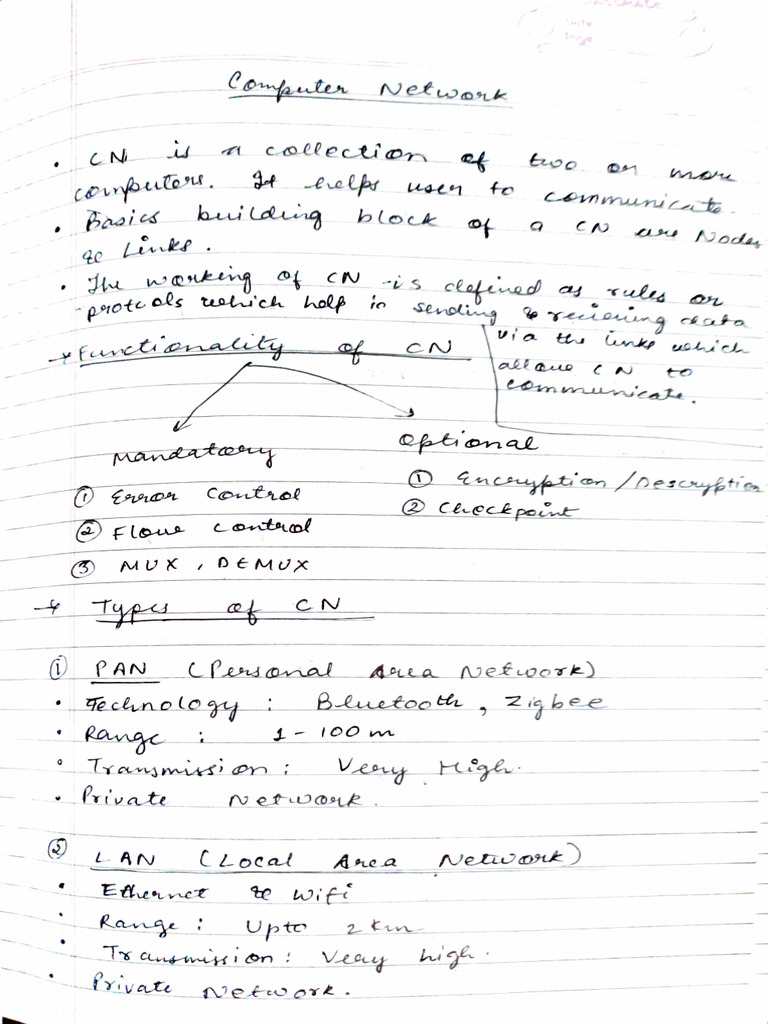 Computer Network
• CN is a collection of two or more
computers. It helps user to communicate.
• Basics building block of a CN are Nodes
& Links.
• The working of CN is defined as rules or
protcols which help in sending & recieving data
via the links which
allow CN to
communicate.
→ Functionality of CN
Mandatory
① Error Control
② Flow control
③ MUX, DEMUX
Optional
① Encryption/Descryption
② Checkpoint
→ Types of CN
① PAN (Personal Area Network)
• Technology : Bluetooth, Zigbee
• Range : 1-100m
• Transmission : Very High.
• Private Network.
② LAN (Local Area Network)
• Ethernet & Wifi
• Range : Upto 2 km
• Transmission : Very high.
• Private Network.